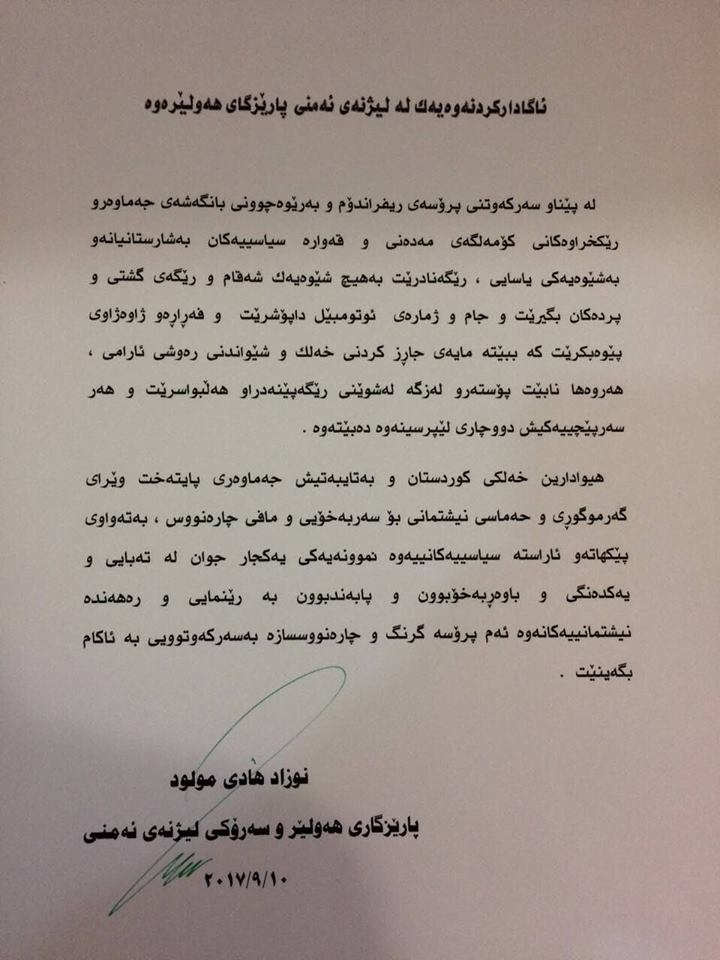 ئاگادارکردنەوەیەك لە لیژنەی ئەمنی پارێزگای هەولێرەوە
لە پێناو سەرکەوتنی پرۆسەی ریفراندۆم و بەرێوەچوونی بانگەشەی جەماوەرو
رێکخراوەکانی کۆمەلگەی مەدەنی و قەوارە سیاسییەکان بەشارستانیانەو
بەشێوەیەکی یاسایی ، رێگەنادرێت بەهیچ شێوەیەك شەقام و رێگەی گشتی و
پردەکان بگیرێت و جام و ژمارەی ئوتومبێل داپۆشرێت و فەڕاڕەو ژاوەژاوی
پێوەبکرێت کە ببێتە مایەی جاڕز کردنی خەلك و شێواندنی رەوشی ئارامی ،
هەروەها نابێت پۆستەرو لەزگە لەشوێنی رێگەپێنەدراو هەڵبواسرێت و هەر
سەرپێچییەکیش دووچاری لێپرسینەوە دەبێتەوە .
هیوادارین خەلکی کوردستان و بەتایبەتیش جەماوەری پایتەخت وێرای
گەرموگوڕی و حەماسی نیشتمانی بۆ سەربەخۆیی و مافی چارەنووس ، بەتەواوی
پێکهاتەو ئاراستە سیاسییەکانییەوە نموونەیەکی یەکجار جوان لە تەبایی و
یەکدەنگی و باوەڕبەخۆبوون و پابەندبوون بە رێنمایی و رەهەندە
نیشتمانییەکانەوە ئەم پرۆسە گرنگ و چارەنووسسازە بەسەرکەوتوویی بە ئاکام
بگەینێت .
نوزاد هادی مولود
پارێزگاری هەولێر و سەرۆکی لیژنەی ئەمنی
٢٠١٧/٩/١٠